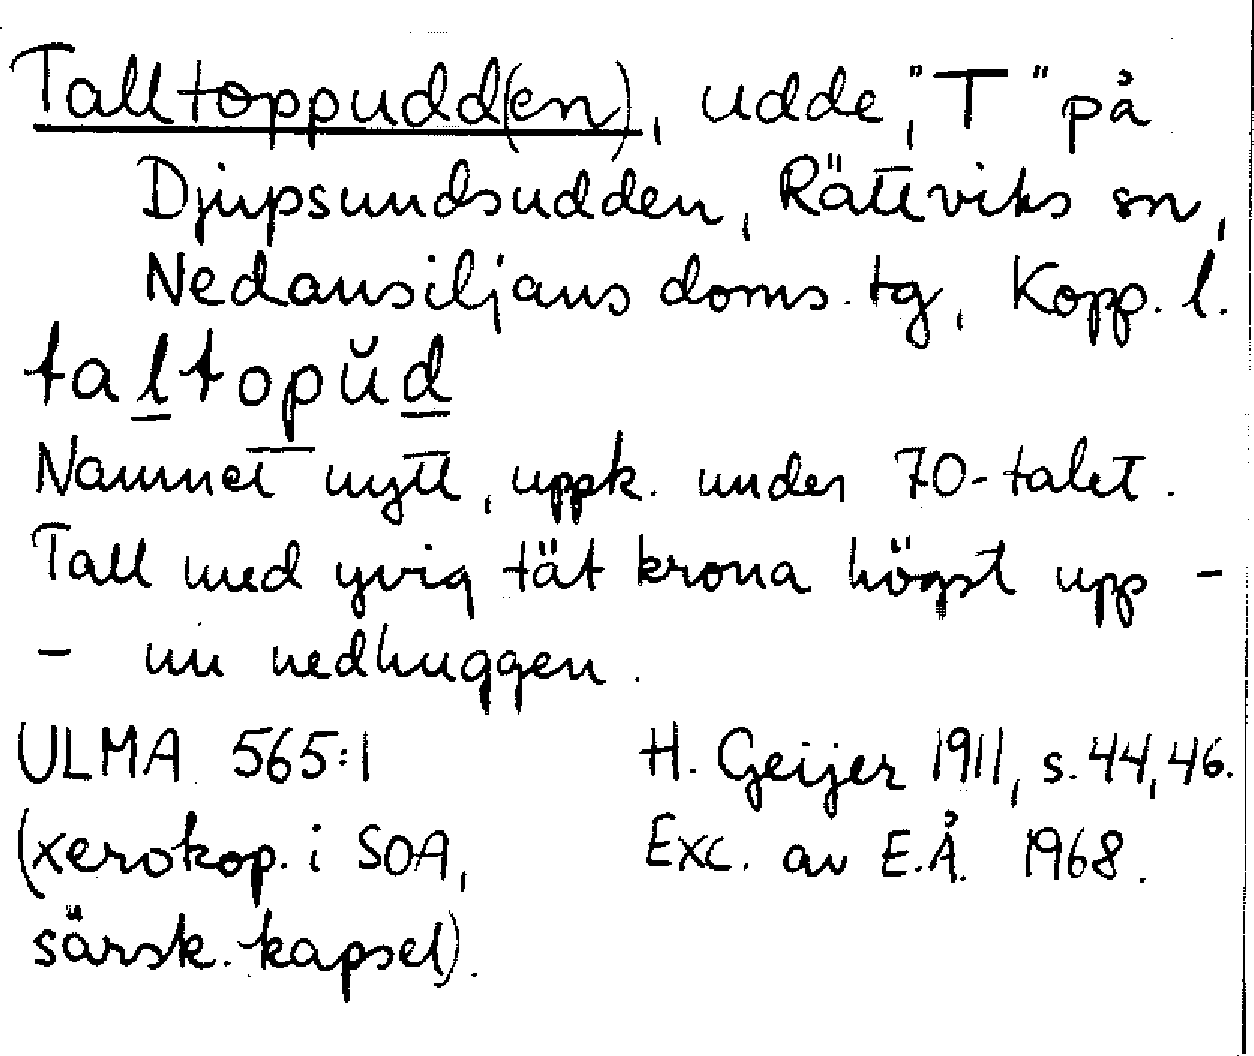 Talltoppudd(en), udde, "T" på
Djupsundsudden, Rättviks sn,
Nedansiljans doms. tg, Kopp. l.
taltopŭd
Namnet nytt, uppk. under 70-talet.
Tall med yvig tät krona högst upp -
- nu nedhuggen.
ULMA 565:1 H. Geijer 1911, s. 44, 46.
(xerokop. i SOA, Exc. av E.Å. 1968.
särsk. kapsel).